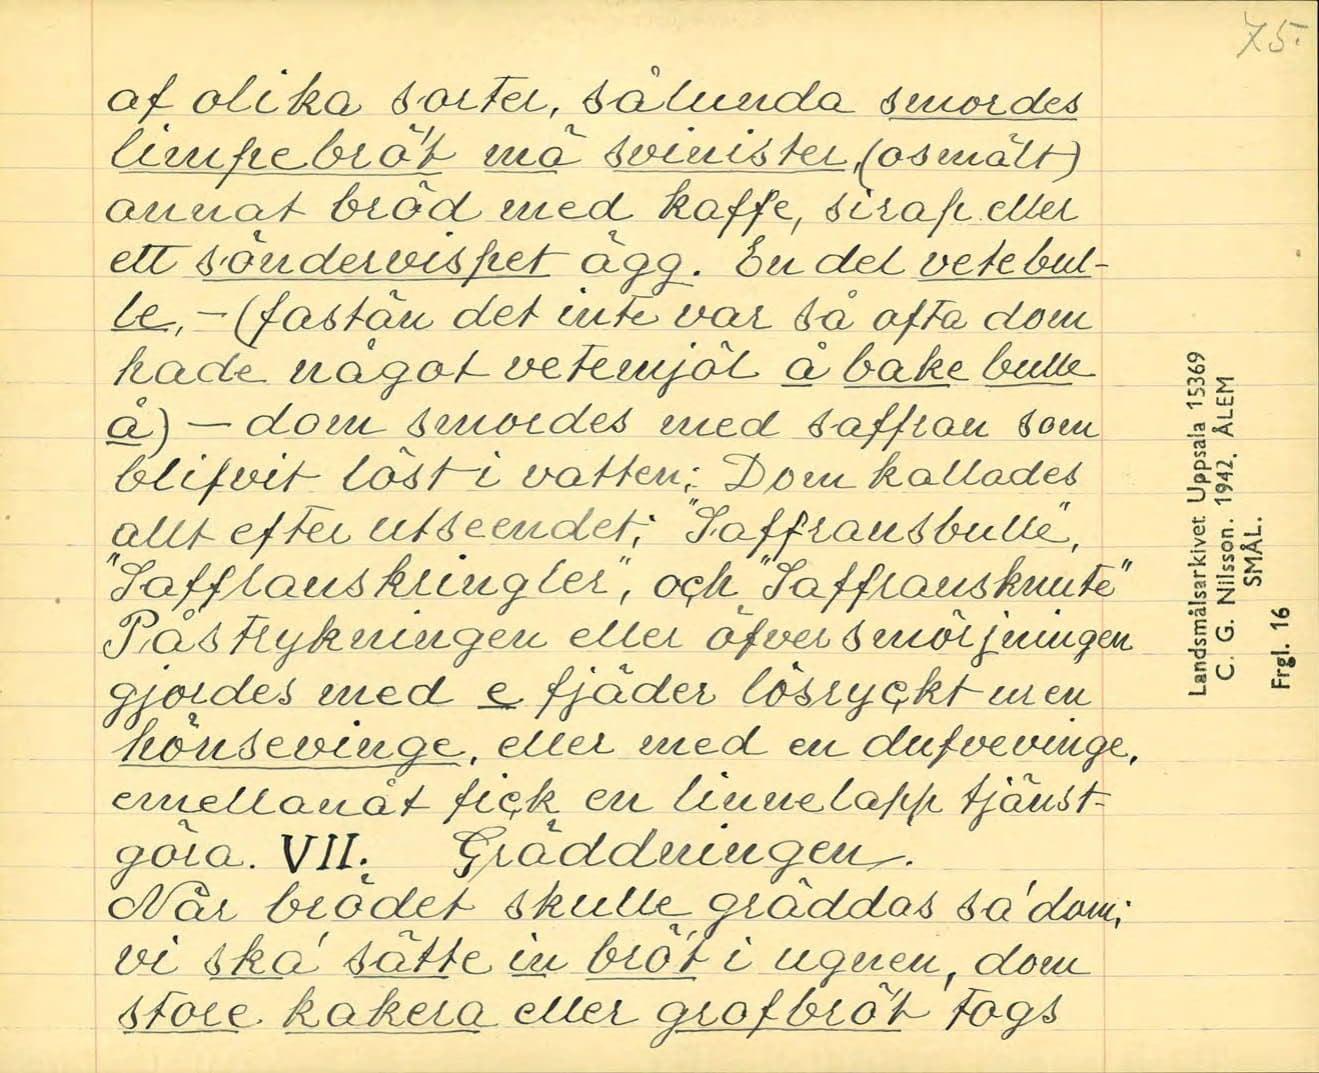 75.
af olika sorter, sålunda smordes
limpebrö't mä svinister, (osmält)
annat bröd med kaffe, sirap eller
ett söndervispet ägg. En del vetebul-
le, - (fastän det inte var så ofta dom
hade något vetemjöl å bake bulle
å) - dom smordes med saffran som
blifvit löst i vatten; Dom kallades
allt efter utseendet; "Saffransbulle",
"Saffranskringler", och "Saffransknute"
Påstrykningen eller öfversmörjningen
gjordes med e fjäder lösryckt ur en
hönsevinge, eller med en dufvevinge,
emellanåt fick en linnelapp tjänst-
göra. VII. Gräddningen.
När brödet skulle gräddas sa' dom;
vi ska' sätte in brö't i ugnen, dom
store kakera eller grofbrö't togs
Landsmålsarkivet Uppsala 15369
C. G. Nilsson. 1942. ÅLEM
SMÅL.
Frgl. 16